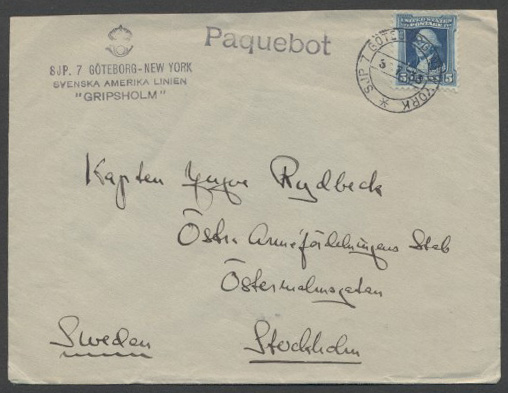 Paquebot
SJP. 7 GÖTEBORG-NEW YORK
SVENSKA AMERIKA LINIEN
"GRIPSHOLM"
UNITED STATES
POSTAGE
5 5
SJP. 7 GÖTEB YORK
Kapten Yngve Rydbeck
Östr. Arméfördelningens Stab
Östermalmsgatan
Stockholm
Sweden